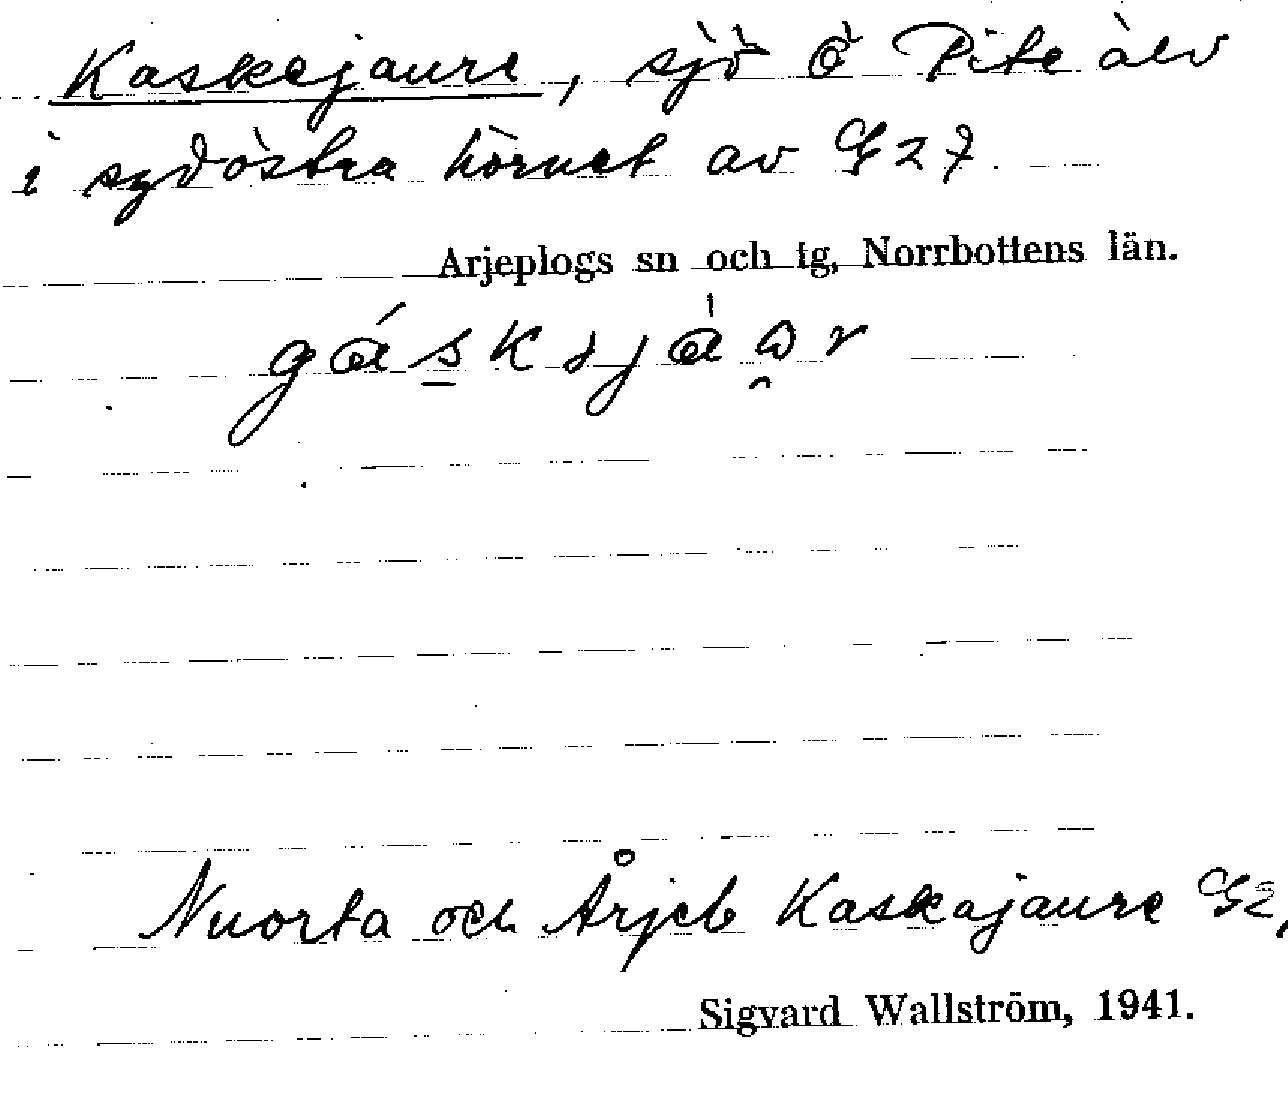 Kaskajaure, sjö Ö Pite älv
i sydöstra hörnet av G27.
Arjeplogs sn och tg, Norrbottens län.
Nuorta och Årjeb Kaskajaure G2
Sigvard Wallström, 1941.